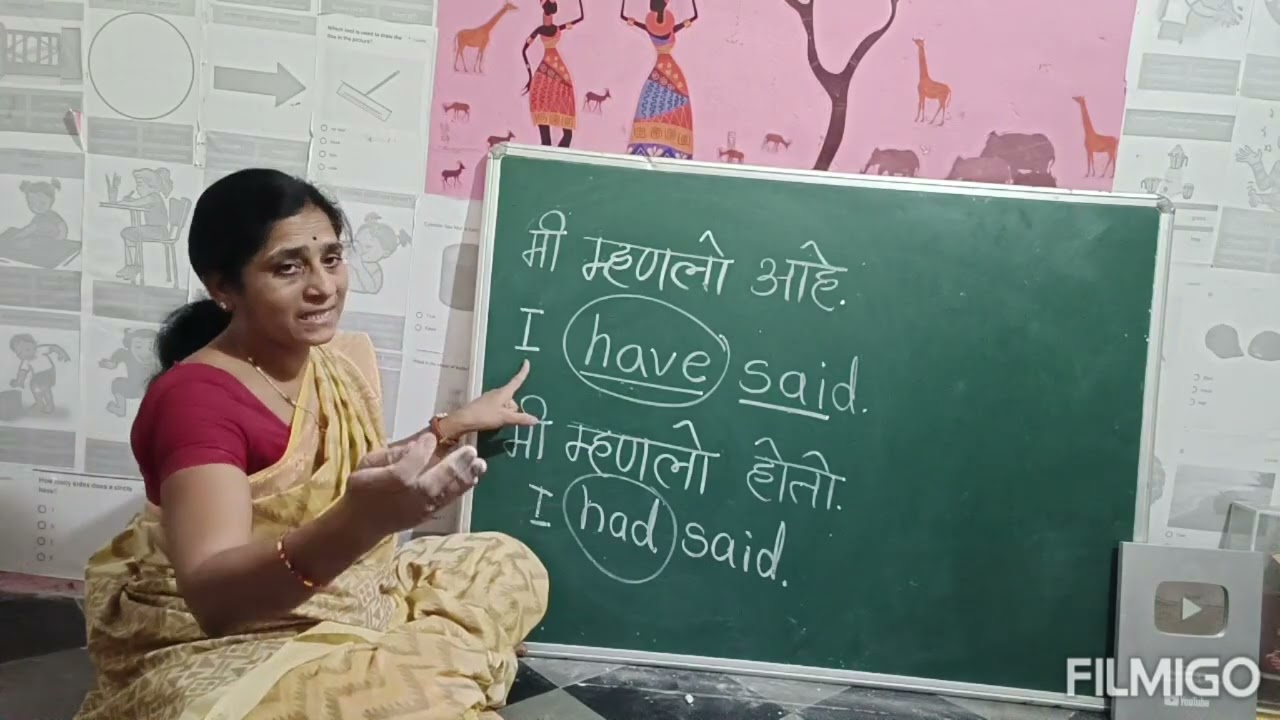 Which tool is used to draw the line in the picture?
मी म्हणलो आहे.
I have said.
मी म्हणलो होतो.
I had said.
How many sides does a circle have?
FILMIGO
YouTube